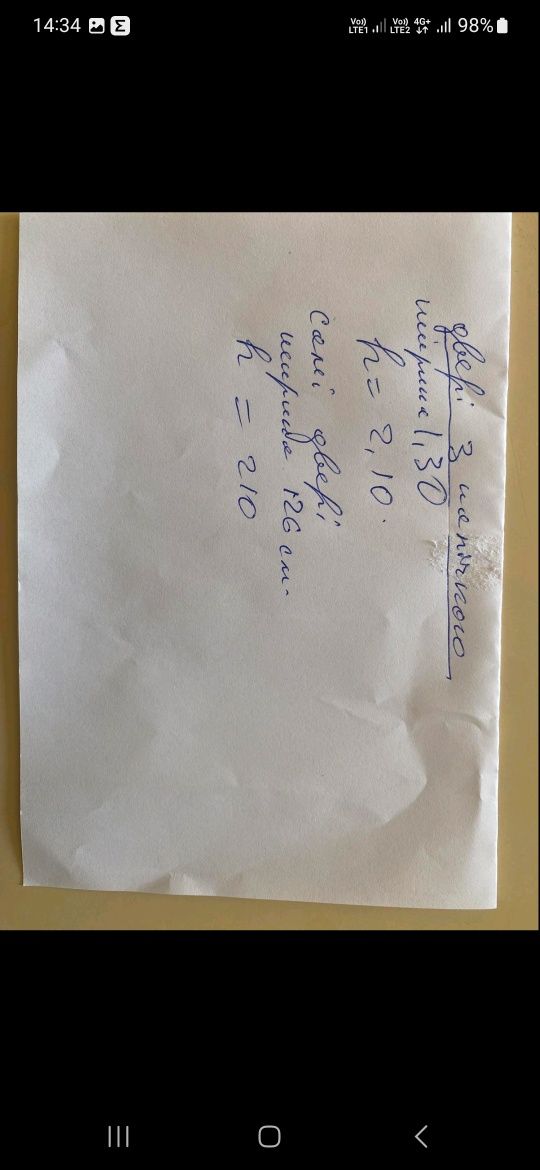 14:34
Vo) LTE1 Vo) LTE2 4G+ 98%
двері з
ширина 1,30
h = 2,10.
Самі двері
ширина 126 см.
h = 210